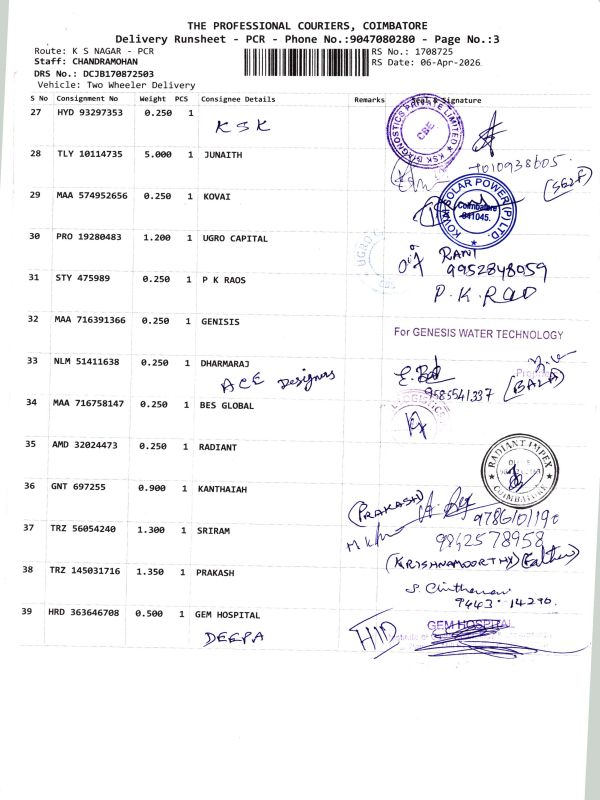 THE PROFESSIONAL COURIERS, COIMBATORE
Delivery Runsheet - PCR - Phone No.:9047080280 - Page No.:3
Route: K S NAGAR - PCR
RS No.: 1708725
Staff: CHANDRAMOHAN
RS Date: 06-Apr-2026
DRS No.: DCJB170872503
Vehicle: Two Wheeler Delivery
S No Consignment No Weight PCS Consignee Details Remarks Seal & Signature
27 HYD 93297353 0.250 1
KSK
KSK DIAGNOSTICS PRIVATE LIMITED
CBE
28 TLY 10114735 5.000 1 JUNAITH
29 MAA 574952656 0.250 1 KOVAI
KOVAI SOLAR POWER (P) LTD.
Coimbatore
641045.
30 PRO 19280483 1.200 1 UGRO CAPITAL
UGRO
RANI
9952848059
31 STY 475989 0.250 1 P K RAOS
P.K.RAO
32 MAA 716391366 0.250 1 GENISIS
For GENESIS WATER TECHNOLOGY
33 NLM 51411638 0.250 1 DHARMARAJ
ACE Designers
9585541337 (BALA)
34 MAA 716758147 0.250 1 BES GLOBAL
LOGISTICS
35 AMD 32024473 0.250 1 RADIANT
RADIANT IMPEX
COIMBATORE
36 GNT 697255 0.900 1 KANTHAIAH
(PRAKASH)
37 TRZ 56054240 1.300 1 SRIRAM
9842578958
(KRISHNAMOORTHY) (Father)
38 TRZ 145031716 1.350 1 PRAKASH
9443 14290.
39 HRD 363646708 0.500 1 GEM HOSPITAL
DEEPA
GEM HOSPITAL